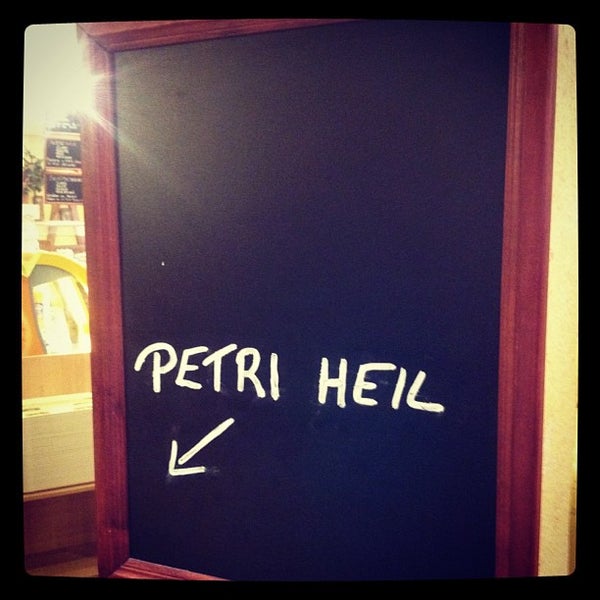 PETRI HEIL